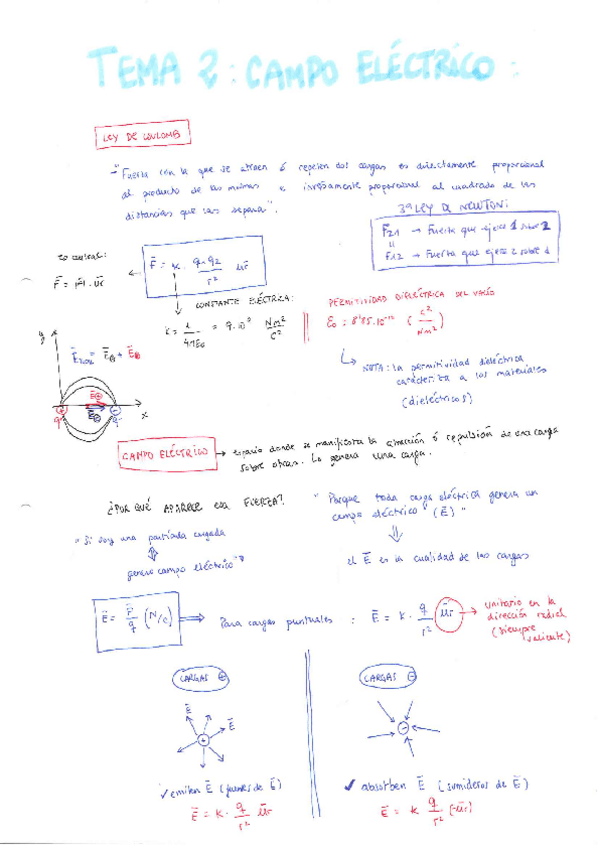 TEMA 2: CAMPO ELÉCTRICO:
LEY DE COULOMB
- "Fuerza con la que se atraen ó repelen dos cargas es directamente proporcional
al producto de las mismas e inversamente proporcional al cuadrado de las
distancias que las separa".
3ª LEY DE NEWTON:
F̄21 → Fuerza que ejerce 1 sobre 2
=
F̄12 → Fuerza que ejerce 2 sobre 1
es central:
F̄ = |F̄| · ūr
F̄ = K · q1·q2 / r² ūr
CONSTANTE ELÉCTRICA:
K = 1 / 4πƐ0 = 9·10⁹ Nm² / C²
PERMITIVIDAD DIELÉCTRICA DEL VACÍO
Ɛ0 = 8'85·10⁻¹² ( C² / Nm² )
NOTA: la permitividad dieléctrica
caracteriza a los materiales
(dieléctricos)
y
Ē = Ē⊕ + Ē⊖
Ē⊕
Ē⊖
x
CAMPO ELÉCTRICO → espacio donde se manifiesta la atracción ó repulsión de una carga
sobre otras. Lo genera una carga.
¿POR QUÉ APARECE ESA FUERZA?
"Porque toda carga eléctrica genera un
campo eléctrico (Ē)"
"Si soy una partícula cargada
genero campo eléctrico"
el Ē es la cualidad de las cargas
Ē = F̄ / q (N/C) ⇒ Para cargas puntuales: Ē = K · q / r² ūr → unitario en la
dirección radial
(siempre
saliente)
CARGAS ⊕
Ē
Ē
+
✓ emiten Ē (fuentes de Ē)
Ē = K · q / r² ūr
CARGAS ⊖
-
✓ absorben Ē (sumideros de Ē)
Ē = K q / r² (-ūr)